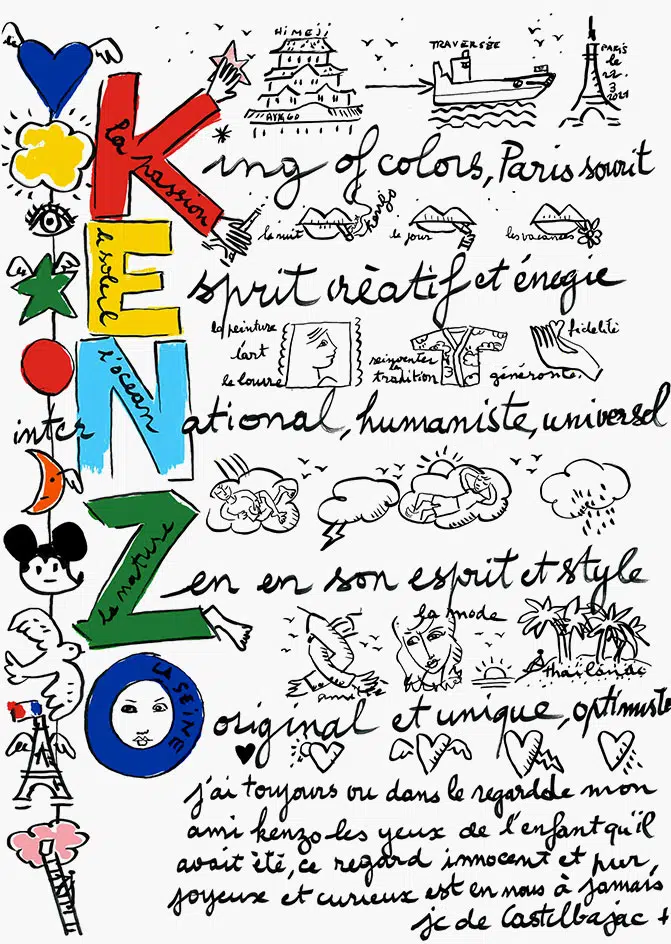 HIMEJI
TRAVERSÉE
PARIS
le
22.
3
2021
HYOGO
la passion
King of colors, Paris sourit
kenzo
la nuit
le jour
les vacances
le soleil
Esprit créatif et énergie
la peinture
l'art
le louvre
réinventer
la
tradition
fidelité
générosité.
l'océan
inter National, humaniste, universel
la nature
Zen en son esprit et style
amitié
la mode
thaïlande
LA SEINE
Original et unique, optimiste
j'ai toujours vu dans le regard de mon
ami kenzo les yeux de l'enfant qu'il
avait été, ce regard innocent et pur,
joyeux et curieux est en nous à jamais
jc de Castelbajac +